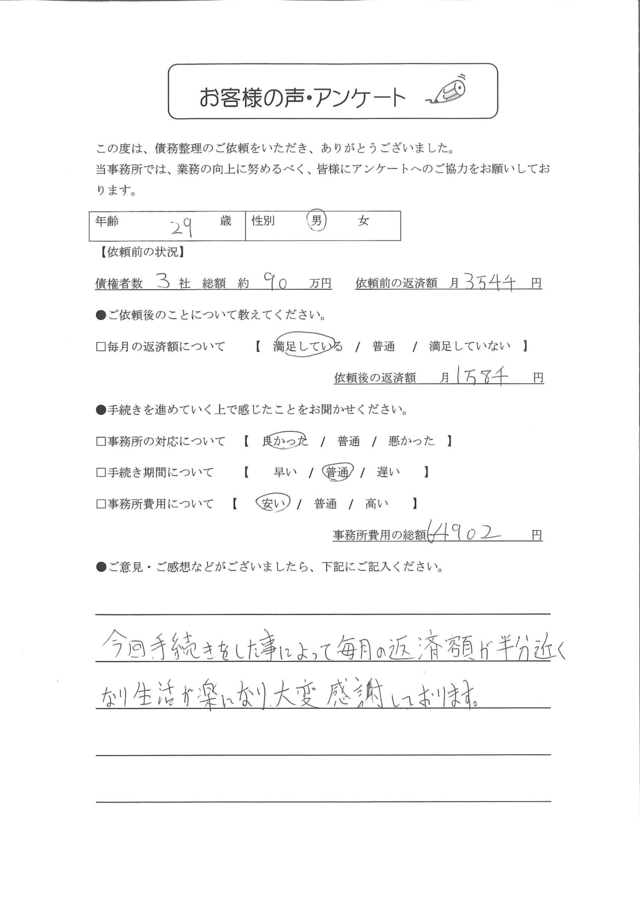 お客様の声・アンケート
この度は、債務整理のご依頼をいただき、ありがとうございました。
当事務所では、業務の向上に努めるべく、皆様にアンケートへのご協力をお願いしてお
ります。
年齢 29 歳 性別 男 女
【依頼前の状況】
債権者数 3 社 総額 約 90 万円 依頼前の返済額 月3万4千 円
●ご依頼後のことについて教えてください。
□毎月の返済額について 【 満足している / 普通 / 満足していない 】
依頼後の返済額 月1万8千 円
●手続きを進めていく上で感じたことをお聞かせください。
□事務所の対応について 【 良かった / 普通 / 悪かった 】
□手続き期間について 【 早い / 普通 / 遅い 】
□事務所費用について 【 安い / 普通 / 高い 】
事務所費用の総額 64902 円
●ご意見・ご感想などがございましたら、下記にご記入ください。
今回手続きをした事によって毎月の返済額が半分近く
なり生活が楽になり、大変感謝しております。